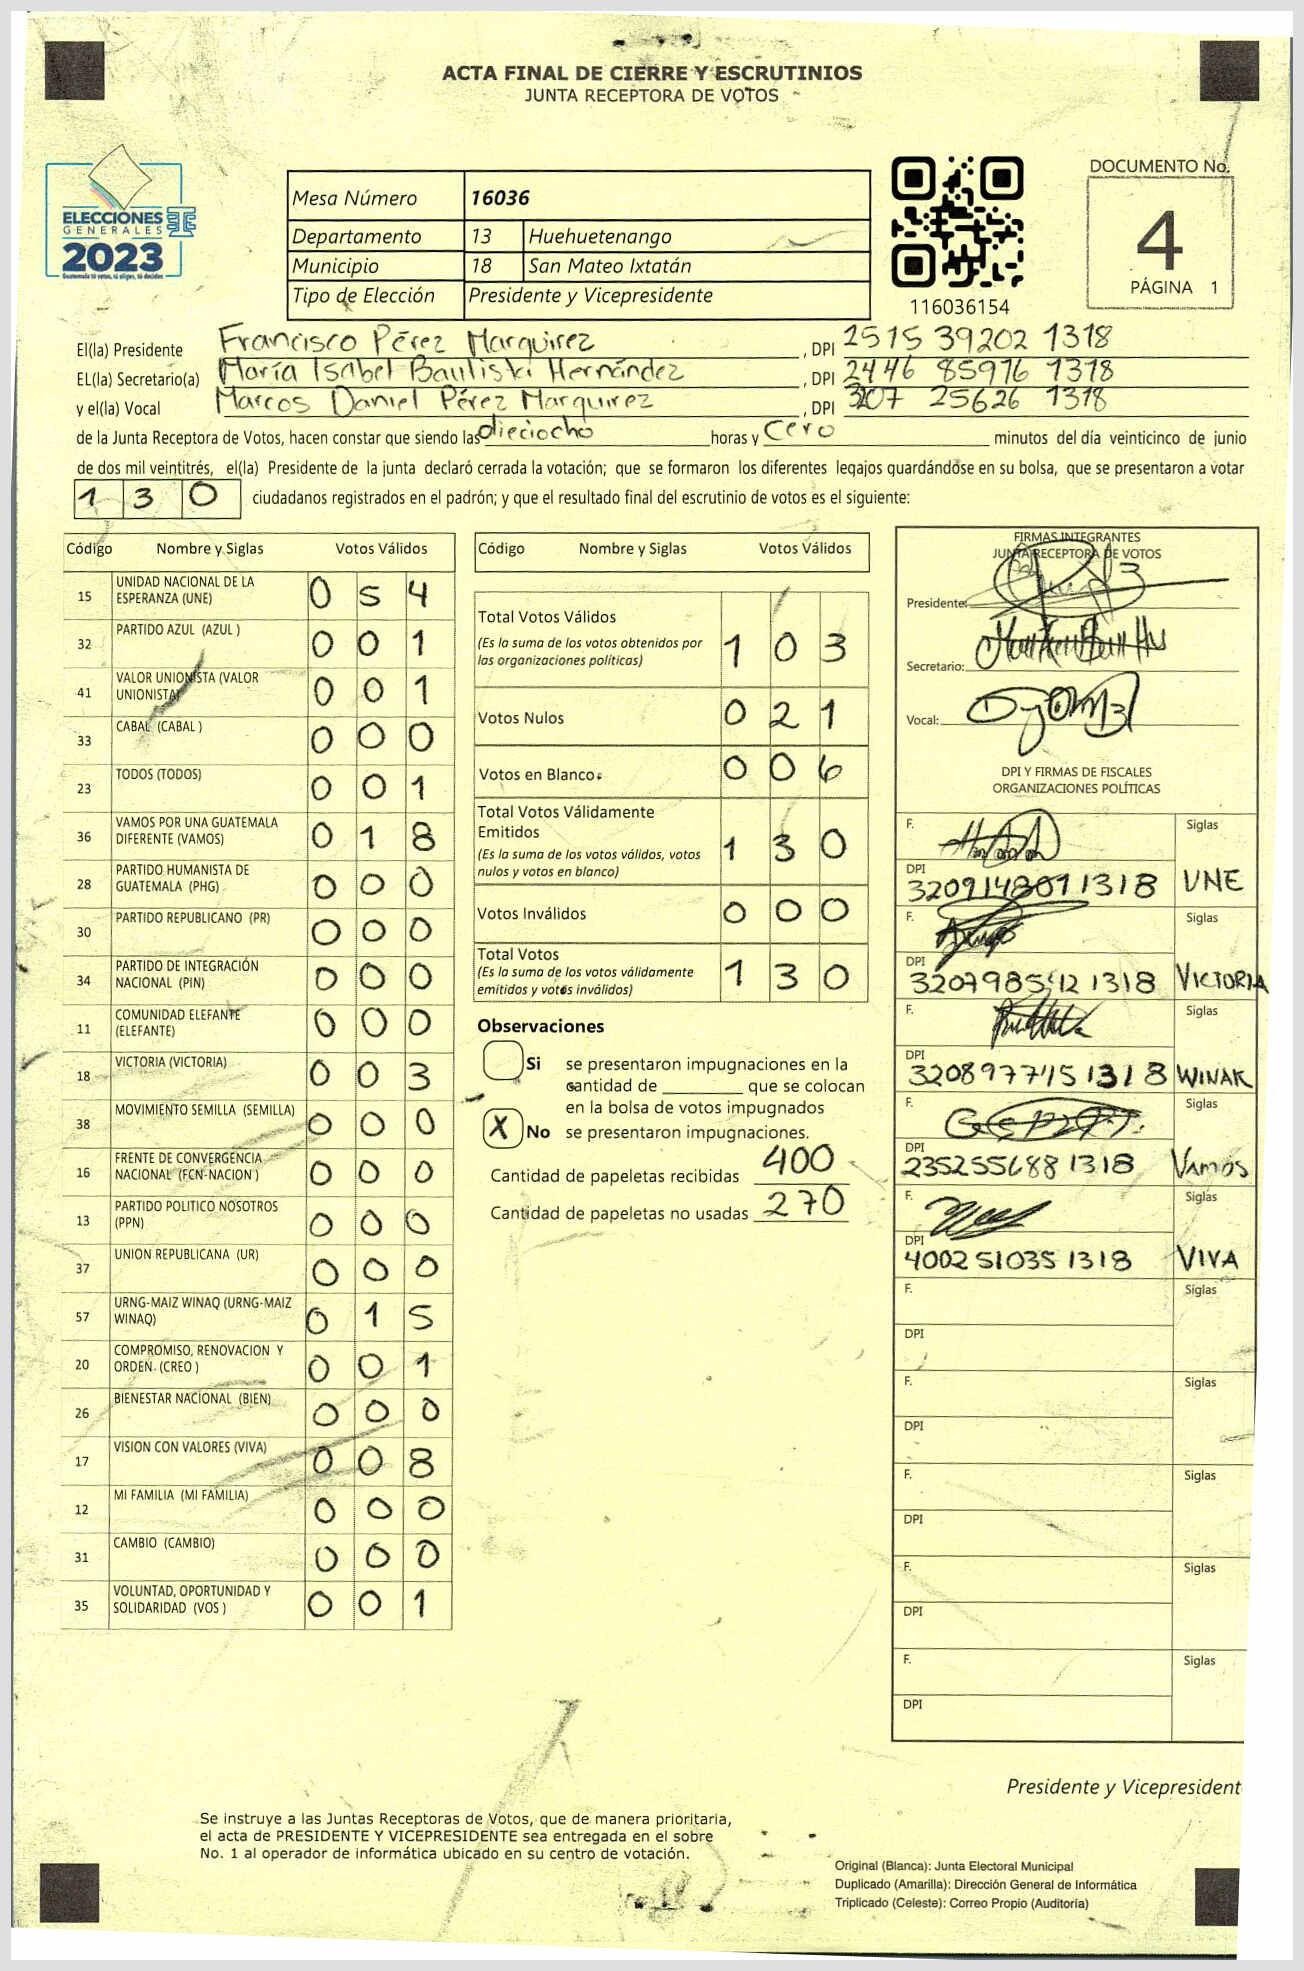 ACTA FINAL DE CIERRE Y ESCRUTINIOS
JUNTA RECEPTORA DE VOTOS
ELECCIONES
GENERALES
2023
Guatemala tú votas, tú eliges, tú decides
Mesa Número 16036
Departamento 13 Huehuetenango
Municipio 18 San Mateo Ixtatán
Tipo de Elección Presidente y Vicepresidente
116036154
DOCUMENTO No.
4
PÁGINA 1
El(la) Presidente Francisco Pérez Marquirez , DPI 2515 39202 1318
EL(la) Secretario(a) María Isabel Bautista Hernández , DPI 2446 85976 1318
y el(la) Vocal Marcos Daniel Pérez Marquirez , DPI 3207 25626 1318
de la Junta Receptora de Votos, hacen constar que siendo las dieciocho horas y cero minutos del día veinticinco de junio
de dos mil veintitrés, el(la) Presidente de la junta declaró cerrada la votación; que se formaron los diferentes legajos guardándose en su bolsa, que se presentaron a votar
130 ciudadanos registrados en el padrón; y que el resultado final del escrutinio de votos es el siguiente:
Código Nombre y Siglas Votos Válidos
15 UNIDAD NACIONAL DE LA ESPERANZA (UNE) 0 5 4
32 PARTIDO AZUL (AZUL ) 0 0 1
41 VALOR UNIONISTA (VALOR UNIONISTA) 0 0 1
33 CABAL (CABAL ) 0 0 0
23 TODOS (TODOS) 0 0 1
36 VAMOS POR UNA GUATEMALA DIFERENTE (VAMOS) 0 1 8
28 PARTIDO HUMANISTA DE GUATEMALA (PHG) 0 0 0
30 PARTIDO REPUBLICANO (PR) 0 0 0
34 PARTIDO DE INTEGRACIÓN NACIONAL (PIN) 0 0 0
11 COMUNIDAD ELEFANTE (ELEFANTE) 0 0 0
18 VICTORIA (VICTORIA) 0 0 3
38 MOVIMIENTO SEMILLA (SEMILLA) 0 0 0
16 FRENTE DE CONVERGENCIA NACIONAL (FCN-NACION ) 0 0 0
13 PARTIDO POLITICO NOSOTROS (PPN) 0 0 0
37 UNION REPUBLICANA (UR) 0 0 0
57 URNG-MAIZ WINAQ (URNG-MAIZ WINAQ) 0 1 5
20 COMPROMISO, RENOVACION Y ORDEN. (CREO ) 0 0 1
26 BIENESTAR NACIONAL (BIEN) 0 0 0
17 VISION CON VALORES (VIVA) 0 0 8
12 MI FAMILIA (MI FAMILIA) 0 0 0
31 CAMBIO (CAMBIO) 0 0 0
35 VOLUNTAD, OPORTUNIDAD Y SOLIDARIDAD (VOS ) 0 0 1
Código Nombre y Siglas Votos Válidos
Total Votos Válidos 1 0 3
(Es la suma de los votos obtenidos por
las organizaciones políticas)
Votos Nulos 0 2 1
Votos en Blanco 0 0 6
Total Votos Válidamente
Emitidos 1 3 0
(Es la suma de los votos válidos, votos
nulos y votos en blanco)
Votos Inválidos 0 0 0
Total Votos 1 3 0
(Es la suma de los votos válidamente
emitidos y votos inválidos)
Observaciones
Si se presentaron impugnaciones en la
cantidad de ________ que se colocan
en la bolsa de votos impugnados
X No se presentaron impugnaciones.
Cantidad de papeletas recibidas 400
Cantidad de papeletas no usadas 270
FIRMAS INTEGRANTES
JUNTA RECEPTORA DE VOTOS
Presidente:
Secretario:
Vocal:
DPI Y FIRMAS DE FISCALES
ORGANIZACIONES POLÍTICAS
F. Siglas
DPI 320914809 1318 UNE
F. Siglas
DPI 320798542 1318 VICTORIA
F. Siglas
DPI 320897745 1318 WINAK
F. Siglas
DPI 235255688 1318 Vamos
F. Siglas
DPI 400251035 1318 VIVA
F. Siglas
DPI
F. Siglas
DPI
F. Siglas
DPI
F. Siglas
DPI
F. Siglas
DPI
Presidente y Vicepresident
Se instruye a las Juntas Receptoras de Votos, que de manera prioritaria,
el acta de PRESIDENTE Y VICEPRESIDENTE sea entregada en el sobre
No. 1 al operador de informática ubicado en su centro de votación.
Original (Blanca): Junta Electoral Municipal
Duplicado (Amarilla): Dirección General de Informática
Triplicado (Celeste): Correo Propio (Auditoría)